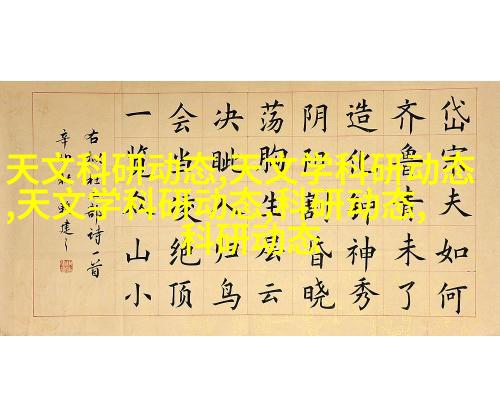 天文科研动态,天文学科研动态
,天文学科研动态,科研动态,
科研动态
岱宗夫如何
齐鲁青未了
造化钟神秀
阴阳割昏晓
荡胸生层云
决眦入归鸟
会当凌绝顶
一览众山小
右杜诗一首
辛建